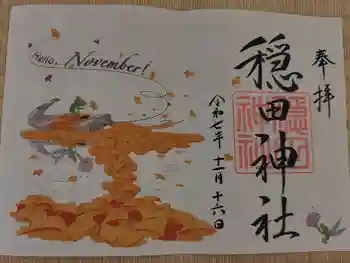 Hello, November!
奉拝
穏田神社
令和七年 十一月 十六日
穏田神社